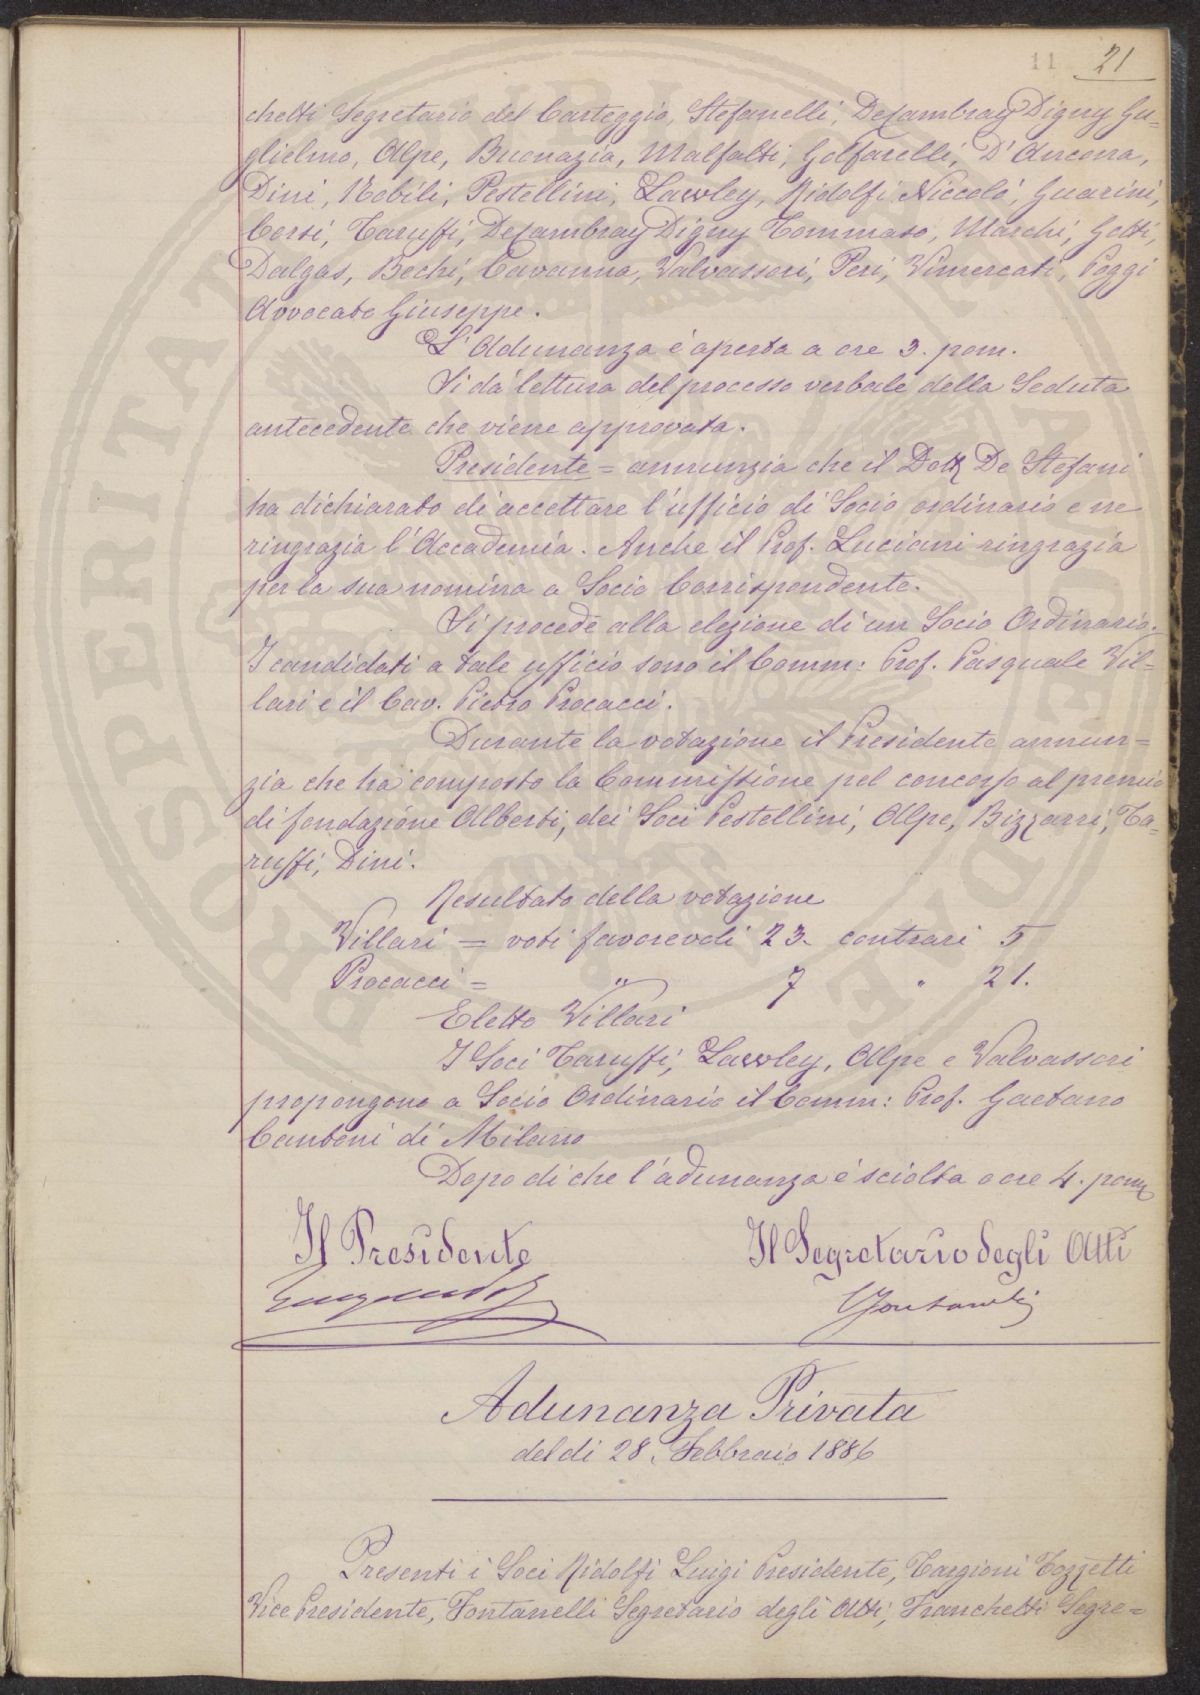 11 21
chetti Segretario del Carteggio, Stefanelli, DeCambray Digny Gu=
glielmo, Alpe, Buonazia, Malfatti, Golfarelli, D'Ancona,
Dini, Nobili, Pestellini, Lawley, Ridolfi Niccolò, Guarini,
Corsi, Taruffi, DeCambray Digny Tommaso, Marchi, Gotti,
Dalgas, Bechi, Cavanna, Valvassori, Peri, Vimercati, Poggi
Avvocato Giuseppe.
L'Adunanza è aperta a ore 3. pom.
Si dà lettura del processo verbale della Seduta
antecedente che viene approvata.
Presidente = annunzia che il Dott De Stefani
ha dichiarato di accettare l'ufficio di Socio ordinario e ne
ringrazia l'Accademia. Anche il Prof. Luciani ringrazia
per la sua nomina a Socio Corrispondente.
Si procede alla elezione di un Socio Ordinario.
I candidati a tale ufficio sono il Comm: Prof. Pasquale Vil=
lari e il Cav. Pietro Procacci.
Durante la votazione il Presidente annun=
zia che ha composto la Commissione pel concorso al premio
di fondazione Alberti, dei Soci Pestellini, Alpe, Bizzarri, Ta=
ruffi, Dini.
Resultato della votazione
Villari = voti favorevoli 23. contrari 5
Procacci = " 7 " 21.
Eletto Villari
I Soci Taruffi, Lawley, Alpe e Valvassori
propongono a Socio Ordinario il Comm: Prof. Gaetano
Cantoni di Milano
Dopo di che l'adunanza è sciolta a ore 4. pom
Il Presidente Il Segretario degli Atti
Fontanelli
Adunanza Privata
del dì 28. Febbraio 1886
Presenti i Soci Ridolfi Luigi Presidente, Targioni Tozzetti
Vice Presidente, Fontanelli Segretario degli Atti, Franchetti Segre=
PROSPERITATI PUBLICAE AUGENDAE